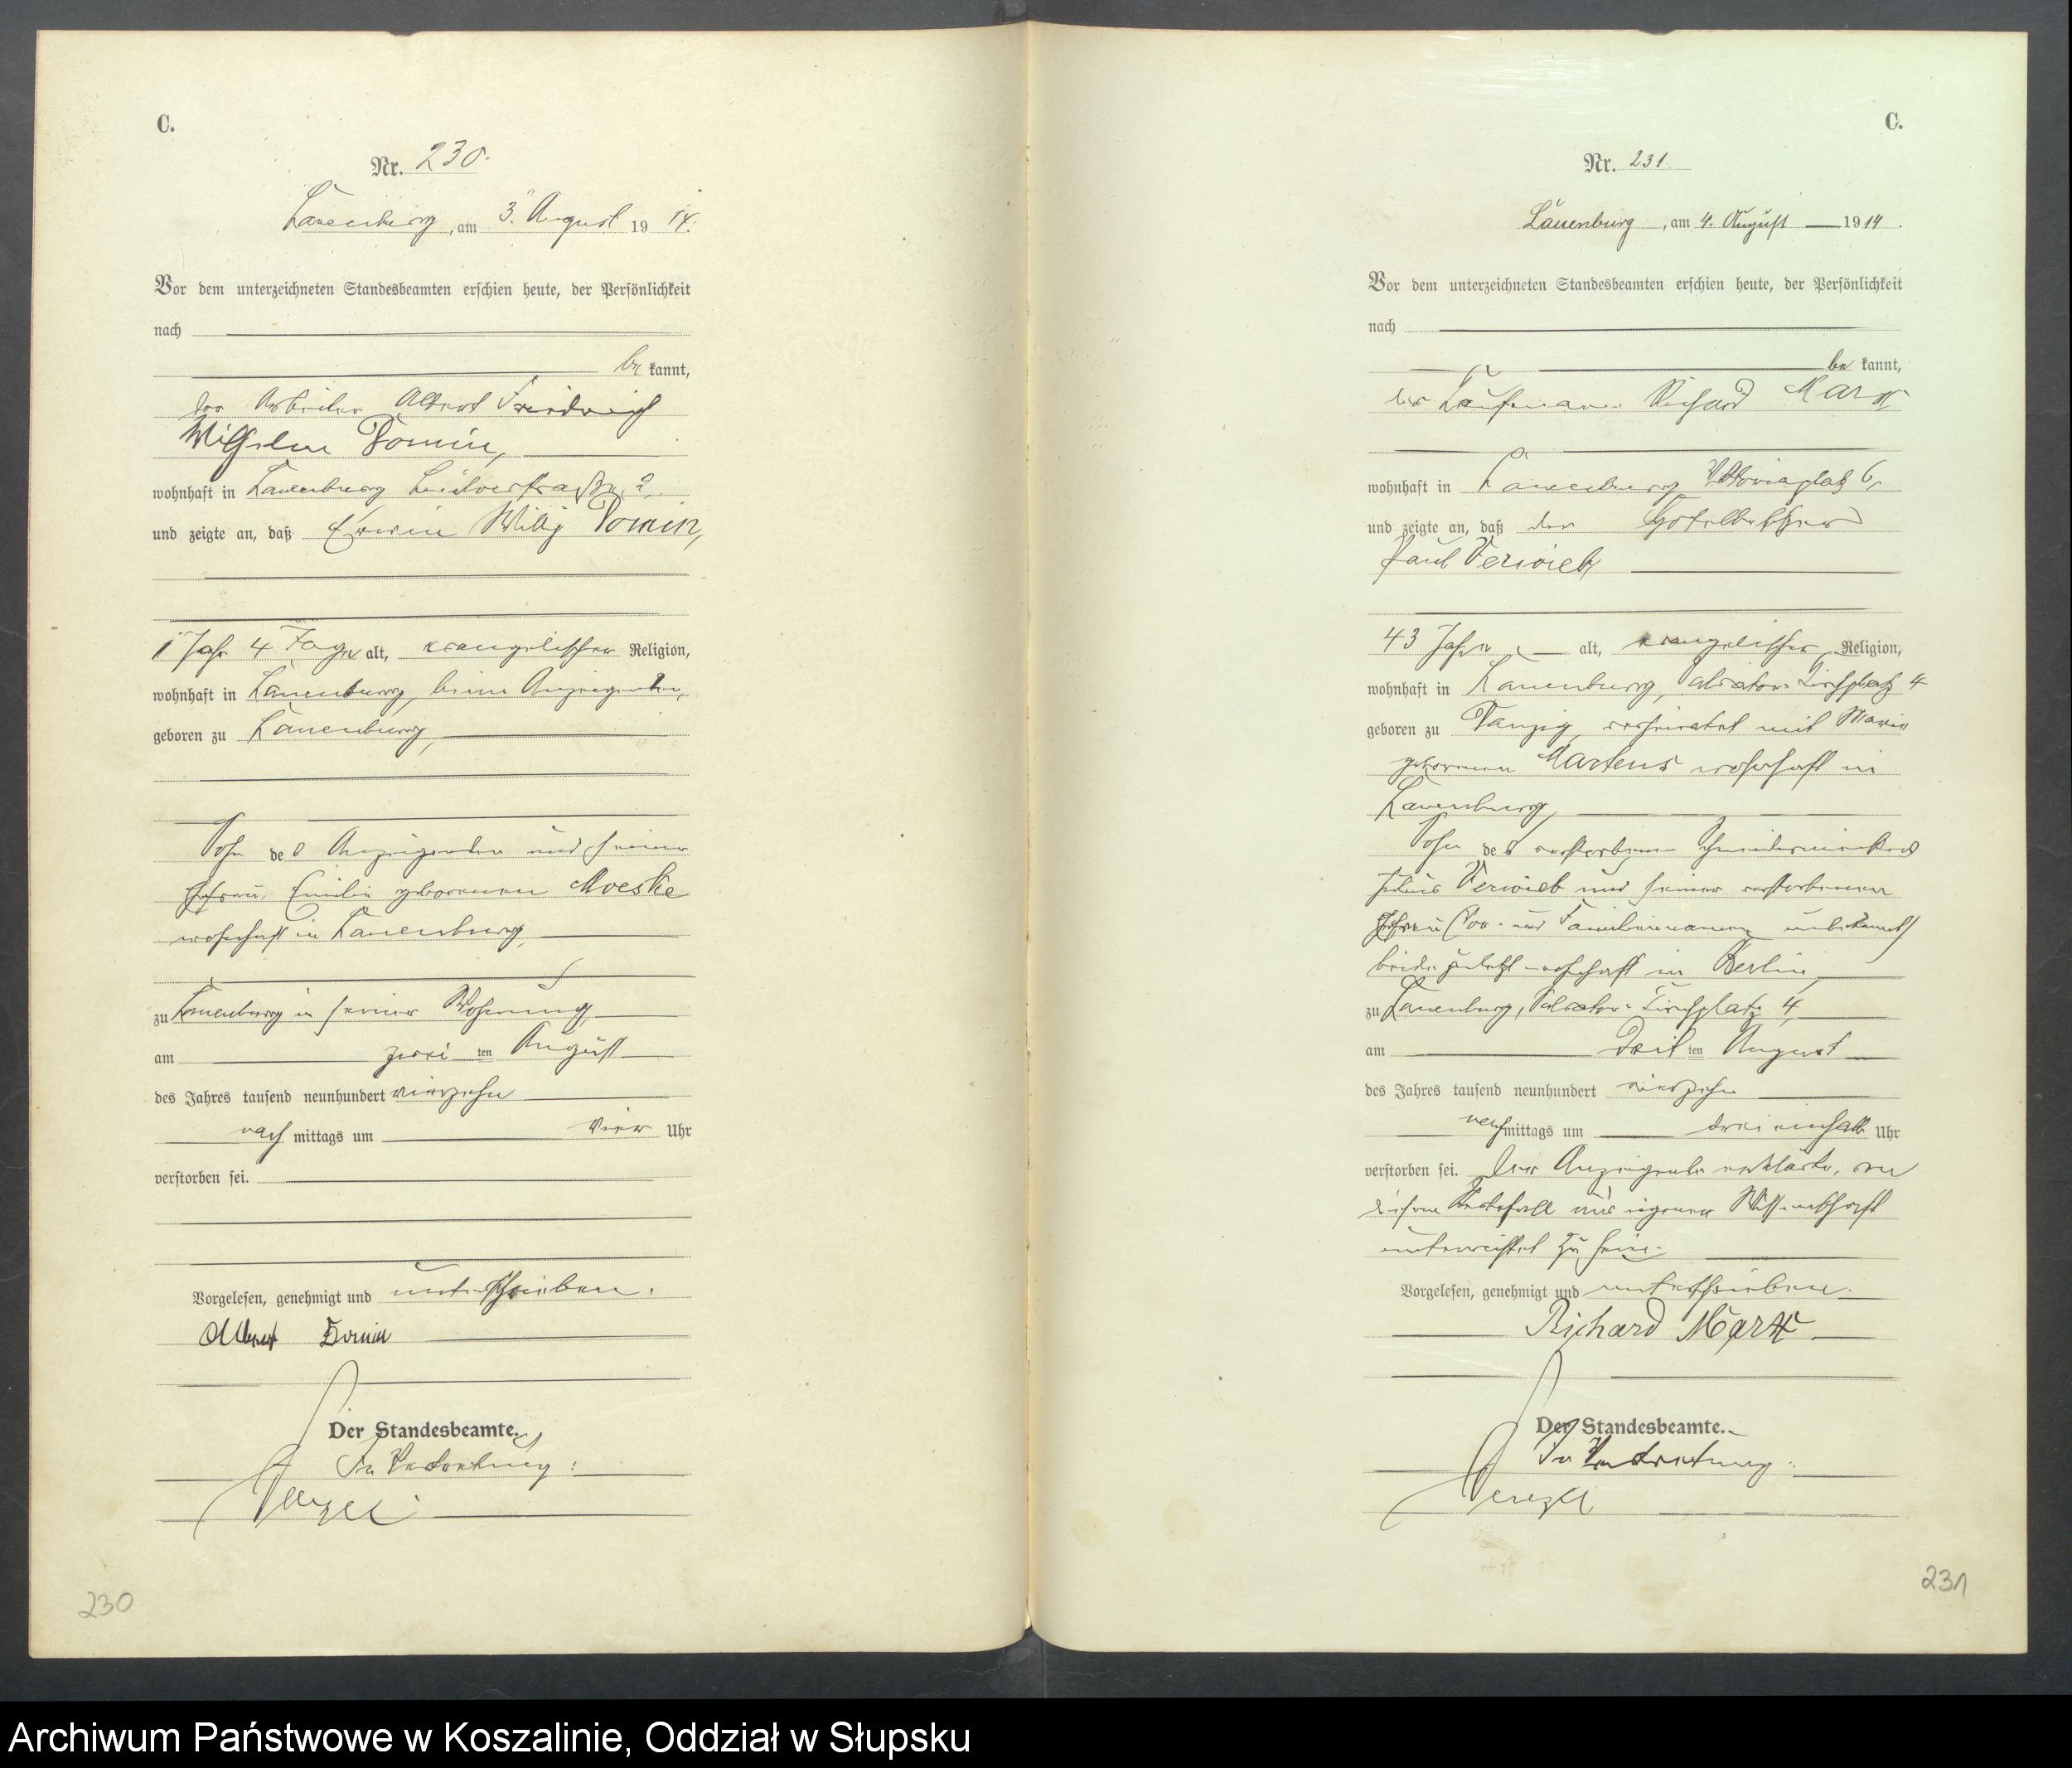 C.
Nr. 230.
Lauenburg, am 3. August 1914.
Vor dem unterzeichneten Standesbeamten erschien heute, der Persönlichkeit
nach
be kannt,
der Arbeiter Albert Friedrich
Wilhelm Domin,
wohnhaft in Lauenburg
und zeigte an, daß Erwin Willy Domin,
1 Jahr 4 Tage alt, evangelischer Religion,
wohnhaft in Lauenburg, beim Anzeigenden,
geboren zu Lauenburg,
Sohn des Anzeigenden und seiner
Ehefrau, Emilie geborenen Moeske
wohnhaft in Lauenburg,
zu Lauenburg in seiner Wohnung,
am zweiten August
des Jahres tausend neunhundert vierzehn
nachmittags um vier Uhr
verstorben sei.
Vorgelesen, genehmigt und unterschrieben.
Albert Domin
Der Standesbeamte.
In Vertretung:
230
C.
Nr. 231.
Lauenburg, am 4. August 1914.
Vor dem unterzeichneten Standesbeamten erschien heute, der Persönlichkeit
nach
be kannt,
der Kaufmann Richard
wohnhaft in Lauenburg Viktoriaplatz 6,
und zeigte an, daß der Hotelbesitzer
Paul Verwieb
43 Jahre alt, evangelischer Religion,
wohnhaft in Lauenburg, Salvator-Kirchplatz 4
geboren zu Danzig, verheiratet mit Marie
geborenen Martens wohnhaft in
Lauenburg,
Sohn des verstorbenen Schneidermeisters
Julius Verwieb und seiner verstorbenen
Ehefrau (Vor- und Familienname unbekannt)
beide zuletzt wohnhaft in Berlin,
zu Lauenburg, Salvator-Kirchplatz 4,
am dritten August
des Jahres tausend neunhundert vierzehn
nachmittags um drei einhalb Uhr
verstorben sei. Der Anzeigende erklärte, von
diesem Sterbefall aus eigener Wissenschaft
unterrichtet zu sein.
Vorgelesen, genehmigt und unterschrieben.
Richard
Der Standesbeamte.
In Vertretung:
231
Archiwum Państwowe w Koszalinie, Oddział w Słupsku